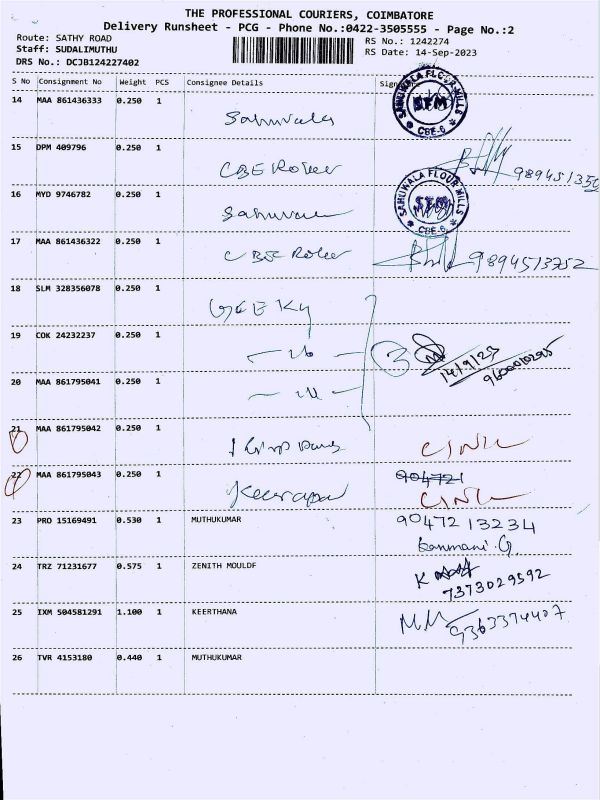 THE PROFESSIONAL COURIERS, COIMBATORE
Delivery Runsheet - PCG - Phone No.:0422-3505555 - Page No.:2
Route: SATHY ROAD
Staff: SUDALIMUTHU
DRS No.: DCJB124227402
RS No.: 1242274
RS Date: 14-Sep-2023
S No Consignment No Weight PCS Consignee Details
14 MAA 861436333 0.250 1
SAHUWALA FLOUR MILLS
SFM
CBE-6
15 DPM 409796 0.250 1 CBE Roller
16 MYD 9746782 0.250 1
SAHUWALA FLOUR MILLS
SFM
CBE-6
17 MAA 861436322 0.250 1 CBE Roller 9894513752
18 SLM 328356078 0.250 1 GEE KY
19 COK 24232237 0.250 1 3 14/9/23
20 MAA 861795041 0.250 1
21 MAA 861795042 0.250 1
22 MAA 861795043 0.250 1 904721
23 PRO 15169491 0.530 1 MUTHUKUMAR 9047213234
Kanmani.G
24 TRZ 71231677 0.575 1 ZENITH MOULDF K
7373029592
25 IXM 504581291 1.100 1 KEERTHANA 9363374407
26 TVR 4153180 0.440 1 MUTHUKUMAR